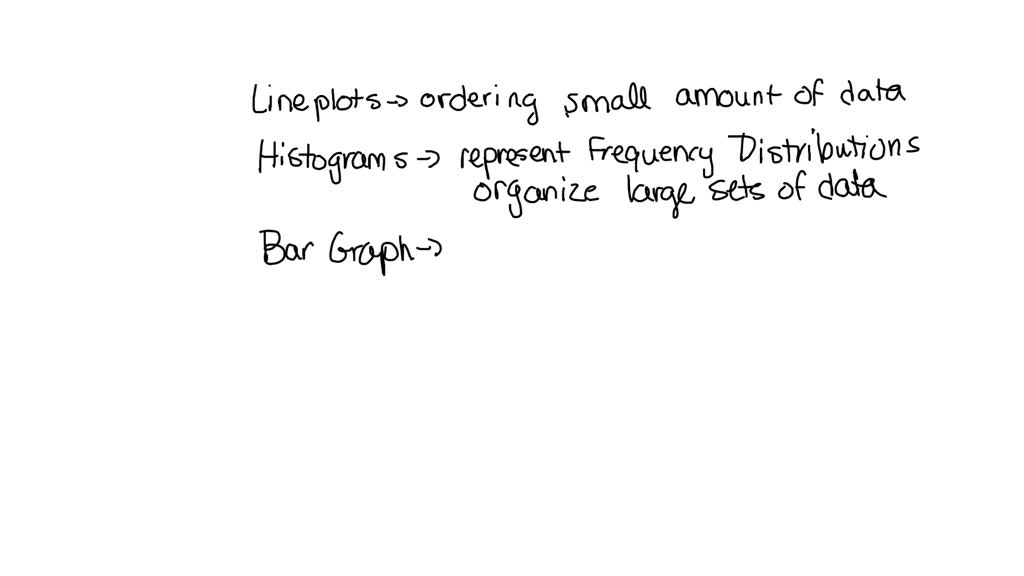 Line plots → ordering small amount of data
Histograms → represent Frequency Distributions
organize large sets of data
Bar Graph →